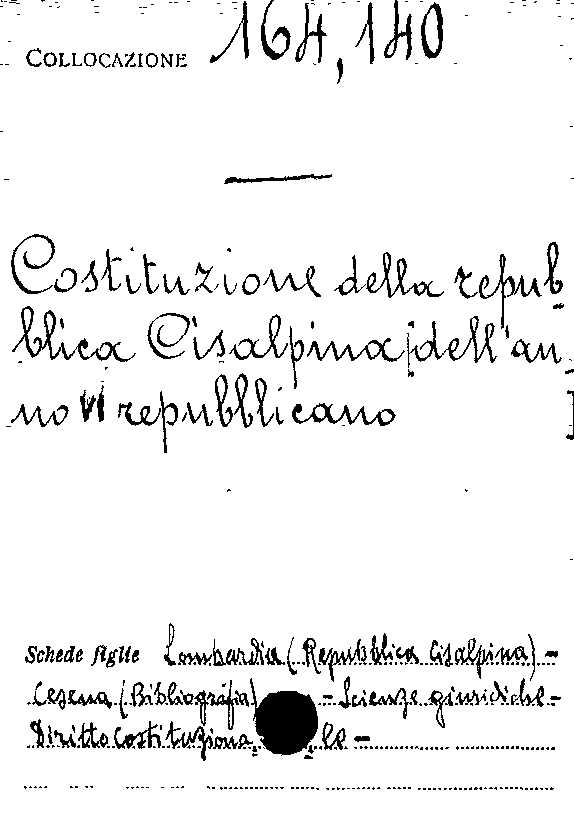 COLLOCAZIONE 164, 140
Costituzione della repub
blica Cisalpina [dell'an
no VI repubblicano ]
Schede figlie Lombardia (Repubblica Cisalpina) -
Cesena (Bibliografia) - Scienze giuridiche -
Diritto Costituziona le -